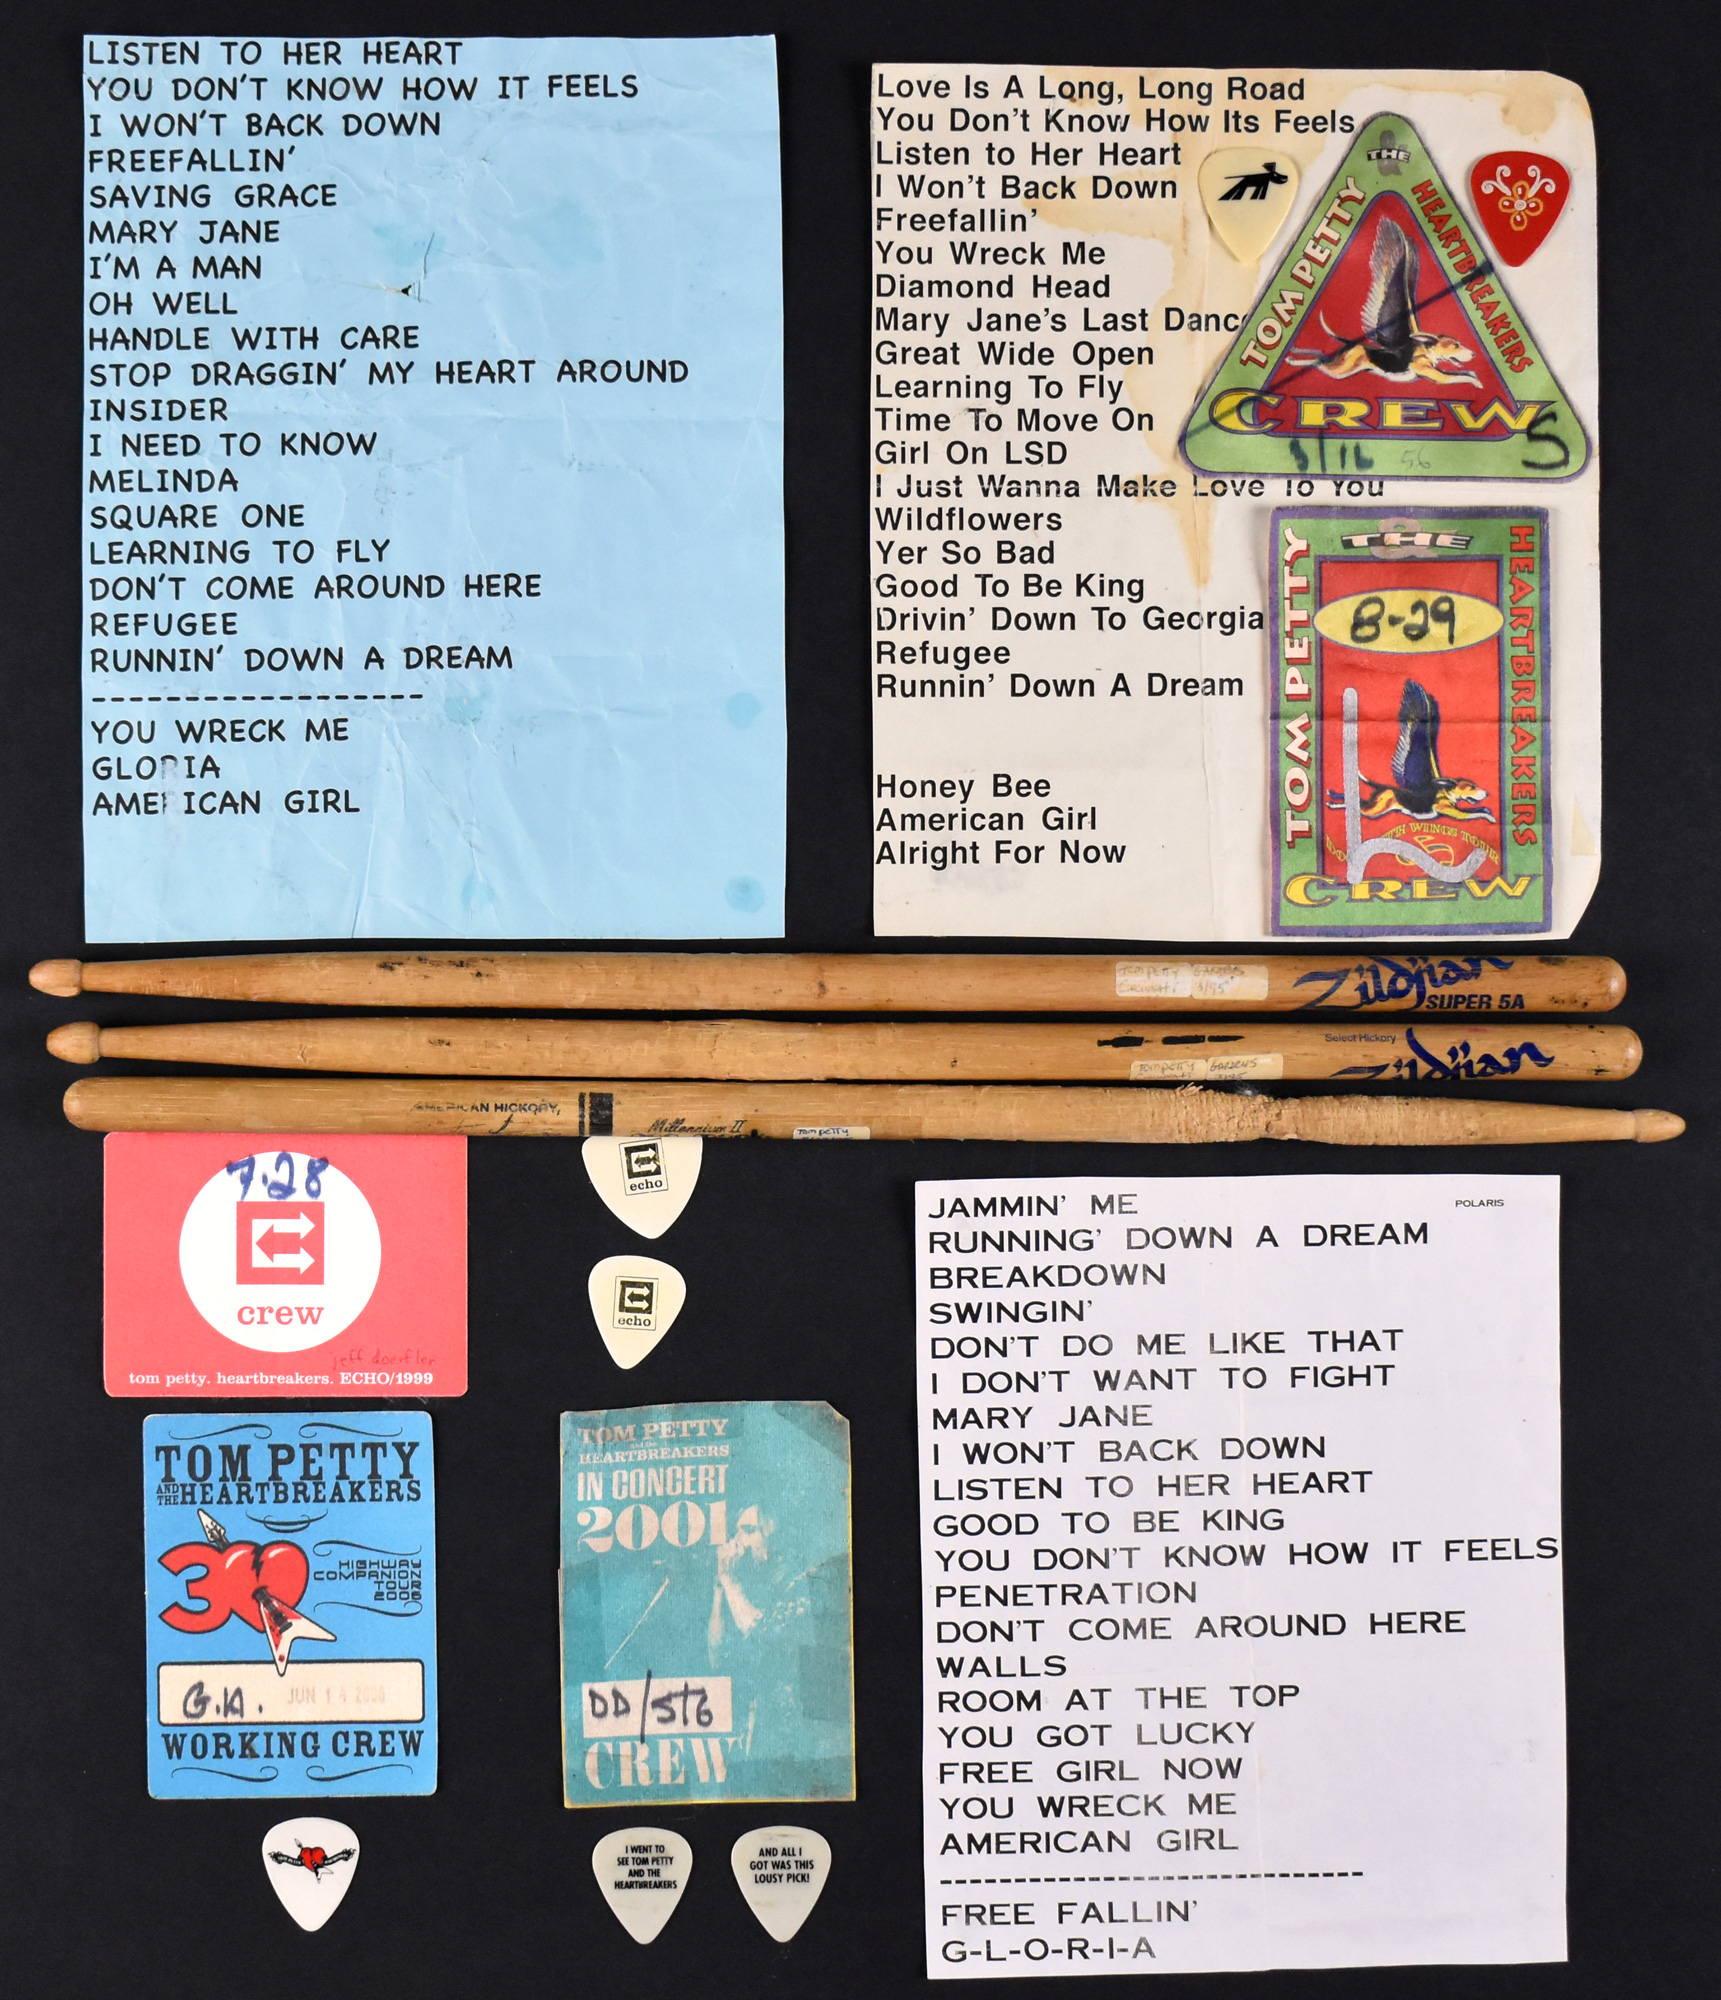 LISTEN TO HER HEART
YOU DON'T KNOW HOW IT FEELS
I WON'T BACK DOWN
FREEFALLIN'
SAVING GRACE
MARY JANE
I'M A MAN
OH WELL
HANDLE WITH CARE
STOP DRAGGIN' MY HEART AROUND
INSIDER
I NEED TO KNOW
MELINDA
SQUARE ONE
LEARNING TO FLY
DON'T COME AROUND HERE
REFUGEE
RUNNIN' DOWN A DREAM
------------------
YOU WRECK ME
GLORIA
AMERICAN GIRL
Love Is A Long, Long Road
You Don't Know How Its Feels
Listen to Her Heart
I Won't Back Down
Freefallin'
You Wreck Me
Diamond Head
Mary Jane's Last Dance
Great Wide Open
Learning To Fly
Time To Move On
Girl On LSD
I Just Wanna Make Love To You
Wildflowers
Yer So Bad
Good To Be King
Drivin' Down To Georgia
Refugee
Runnin' Down A Dream
Honey Bee
American Girl
Alright For Now
TOM PETTY
& THE
HEARTBREAKERS
CREW
S
56
TOM PETTY
& THE
HEARTBREAKERS
8-29
CREW
TOM PETTY GARDENS
Zildjian
SUPER 5A
Select Hickory
TOM PETTY GARDENS
Zildjian
AMERICAN HICKORY
Millennium II
TOM PETTY
7.28
crew
jeff doerfler
tom petty. heartbreakers. ECHO/1999
echo
echo
TOM PETTY
AND THE HEARTBREAKERS
30
HIGHWAY
COMPANION
TOUR
2006
G.A.
JUN 14 2006
WORKING CREW
TOM PETTY
and the
HEARTBREAKERS
IN CONCERT
2001
DD/STG
CREW
I WENT TO
SEE TOM PETTY
AND THE
HEARTBREAKERS
AND ALL I
GOT WAS THIS
LOUSY PICK!
POLARIS
JAMMIN' ME
RUNNING' DOWN A DREAM
BREAKDOWN
SWINGIN'
DON'T DO ME LIKE THAT
I DON'T WANT TO FIGHT
MARY JANE
I WON'T BACK DOWN
LISTEN TO HER HEART
GOOD TO BE KING
YOU DON'T KNOW HOW IT FEELS
PENETRATION
DON'T COME AROUND HERE
WALLS
ROOM AT THE TOP
YOU GOT LUCKY
FREE GIRL NOW
YOU WRECK ME
AMERICAN GIRL
------------------------------
FREE FALLIN'
G-L-O-R-I-A